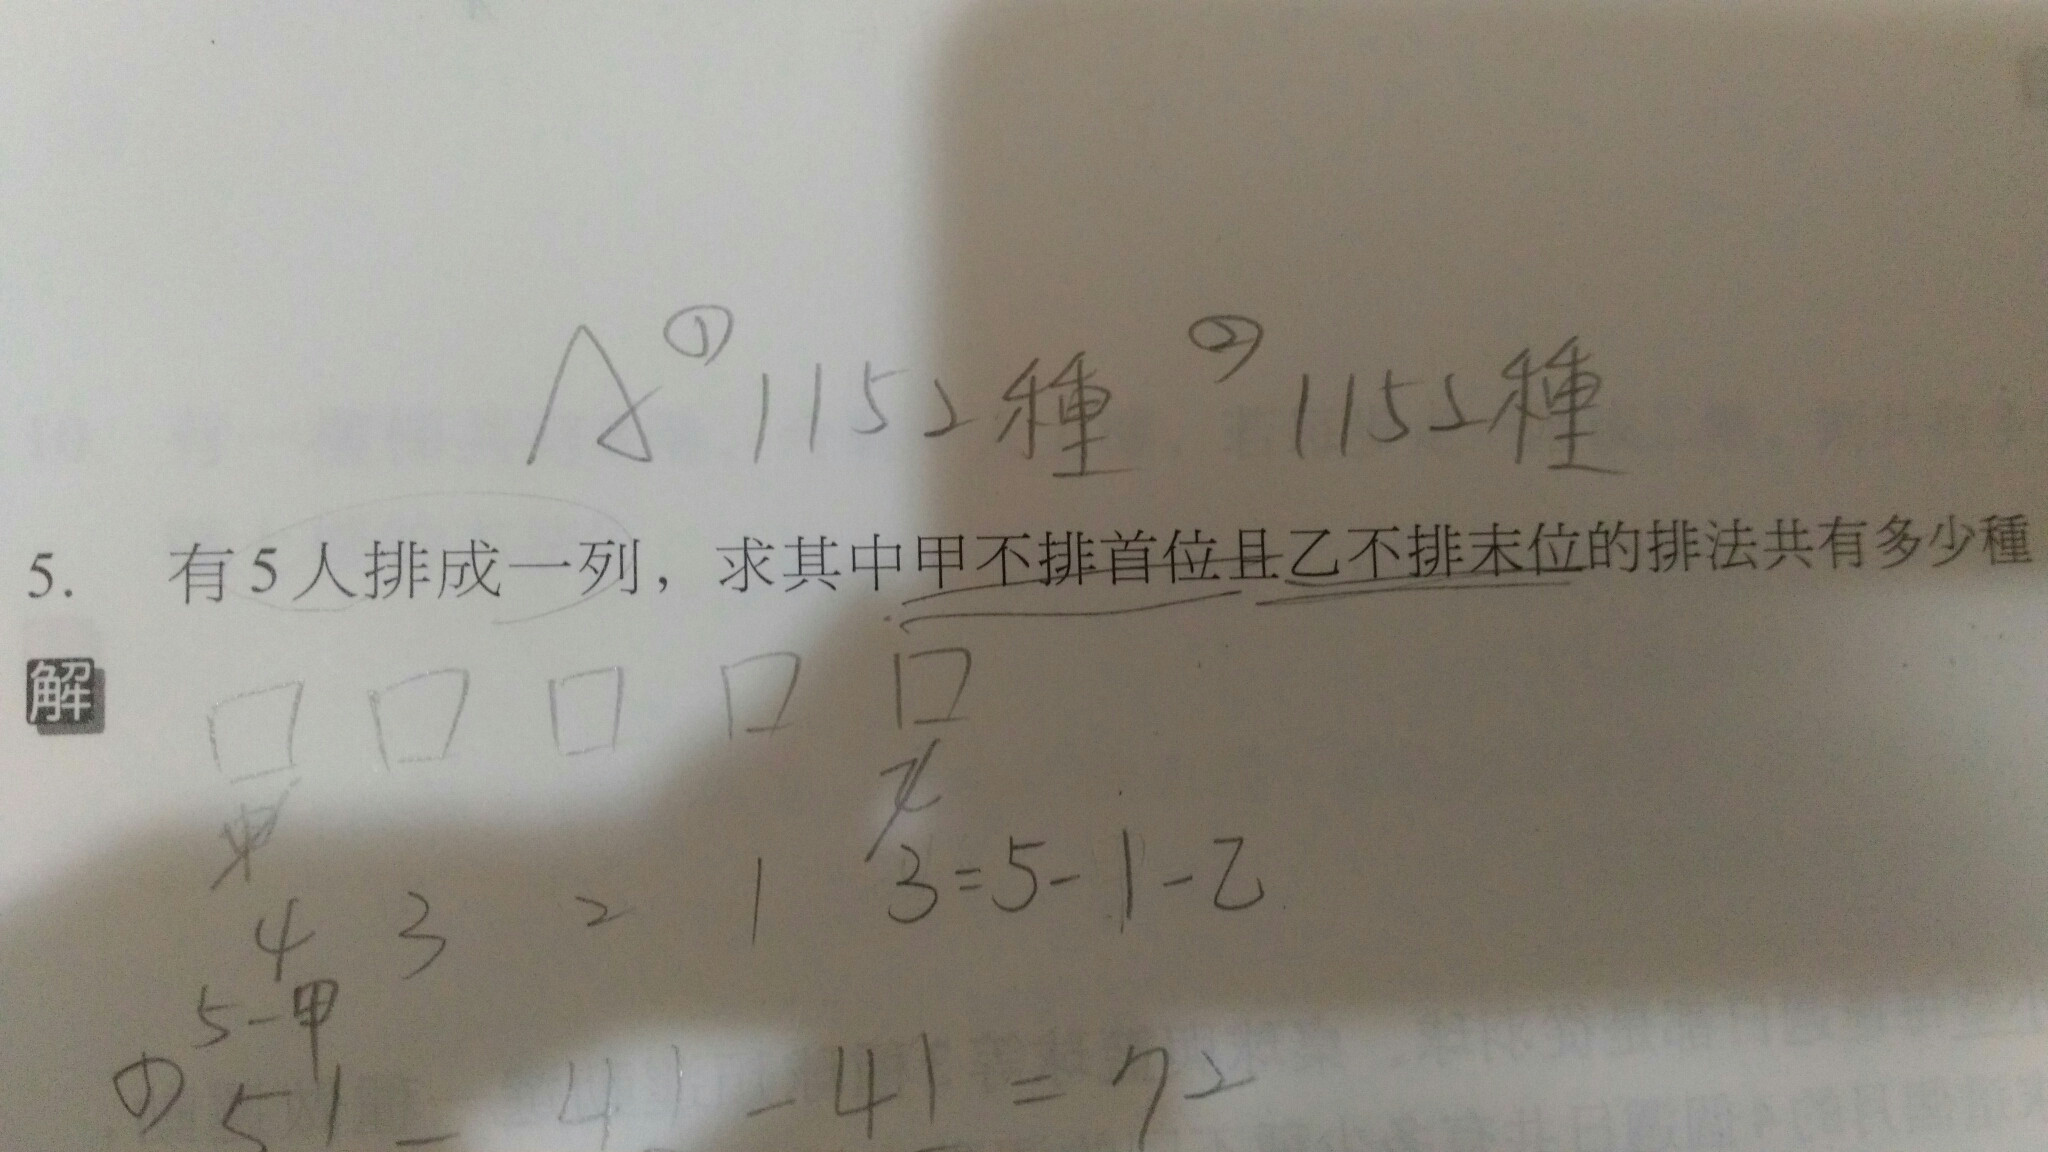 A ① 1152種 ② 1152種
5. 有5人排成一列，求其中甲不排首位且乙不排末位的排法共有多少種
解
甲 乙
4 3 2 1 3=5-1-乙
5-甲
① 5! - 4! - 4! = 72